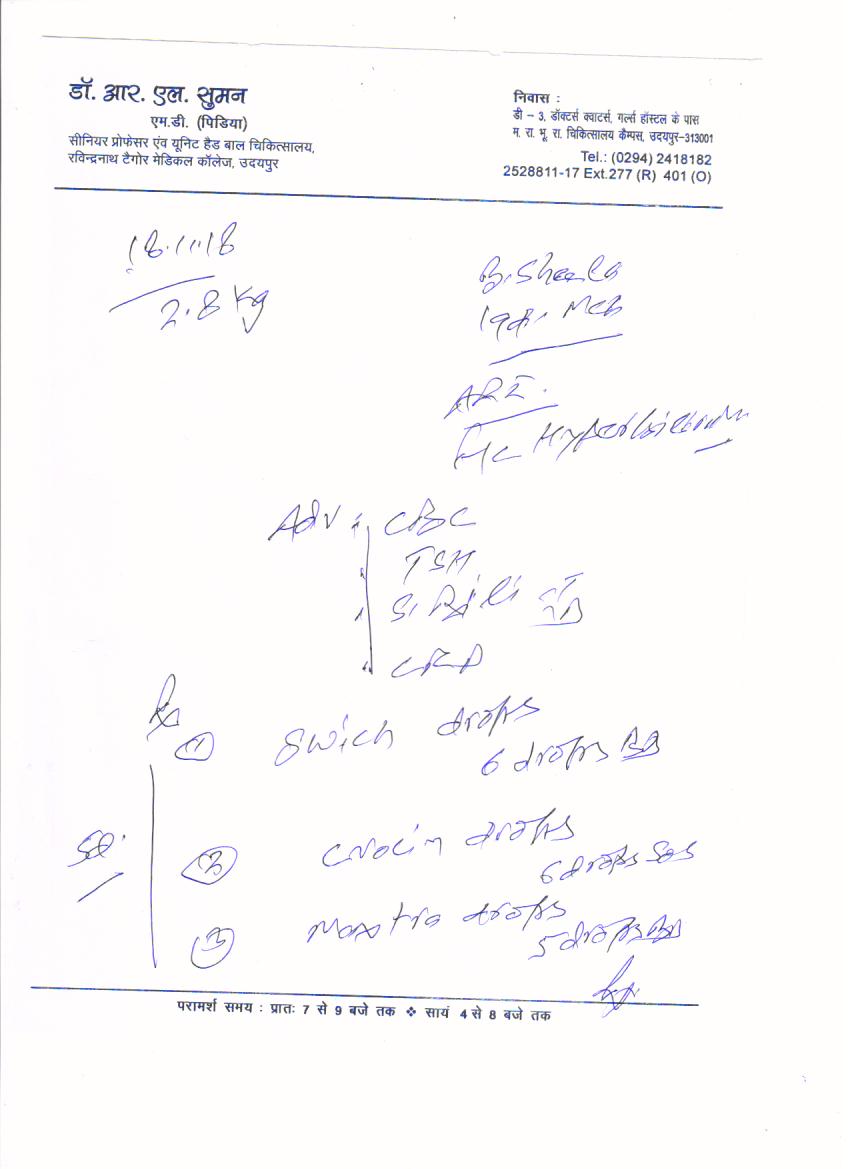 डॉ. आर. एल. सुमन
एम.डी. (पिडिया)
सीनियर प्रोफेसर एंव यूनिट हैड बाल चिकित्सालय,
रविन्द्रनाथ टैगोर मेडिकल कॉलेज, उदयपुर
निवास :
डी – 3, डॉक्टर्स क्वाटर्स, गर्ल्स हॉस्टल के पास
म. रा. भू. रा. चिकित्सालय कैम्पस, उदयपुर–313001
Tel.: (0294) 2418182
2528811-17 Ext.277 (R) 401 (O)
18.11.18
2.8 Kg
B. Sheela
ARI.
Adv : CBC
TSH
S. Bili
CRP
Rx
(1) drops
6 drops BD
(2) Crocin drops
6 drops SOS
(3) drops
5 drops BD
परामर्श समय : प्रातः 7 से 9 बजे तक ❖ सायं 4 से 8 बजे तक